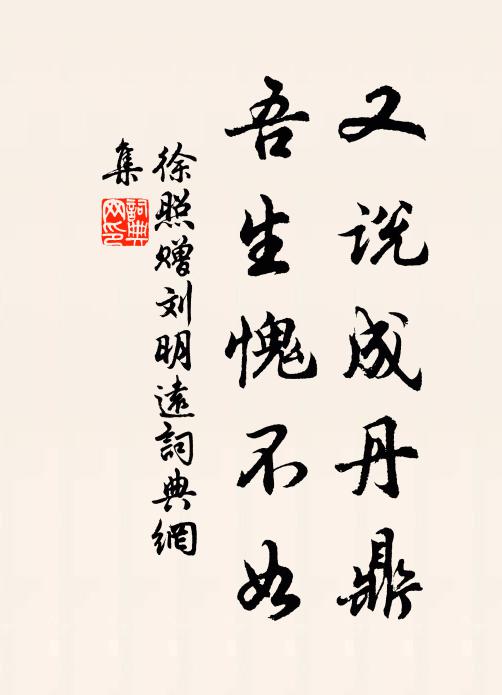 又说成丹鼎
吾生愧不如
徐照赠刘明遠詞典網
集
詞典
网印